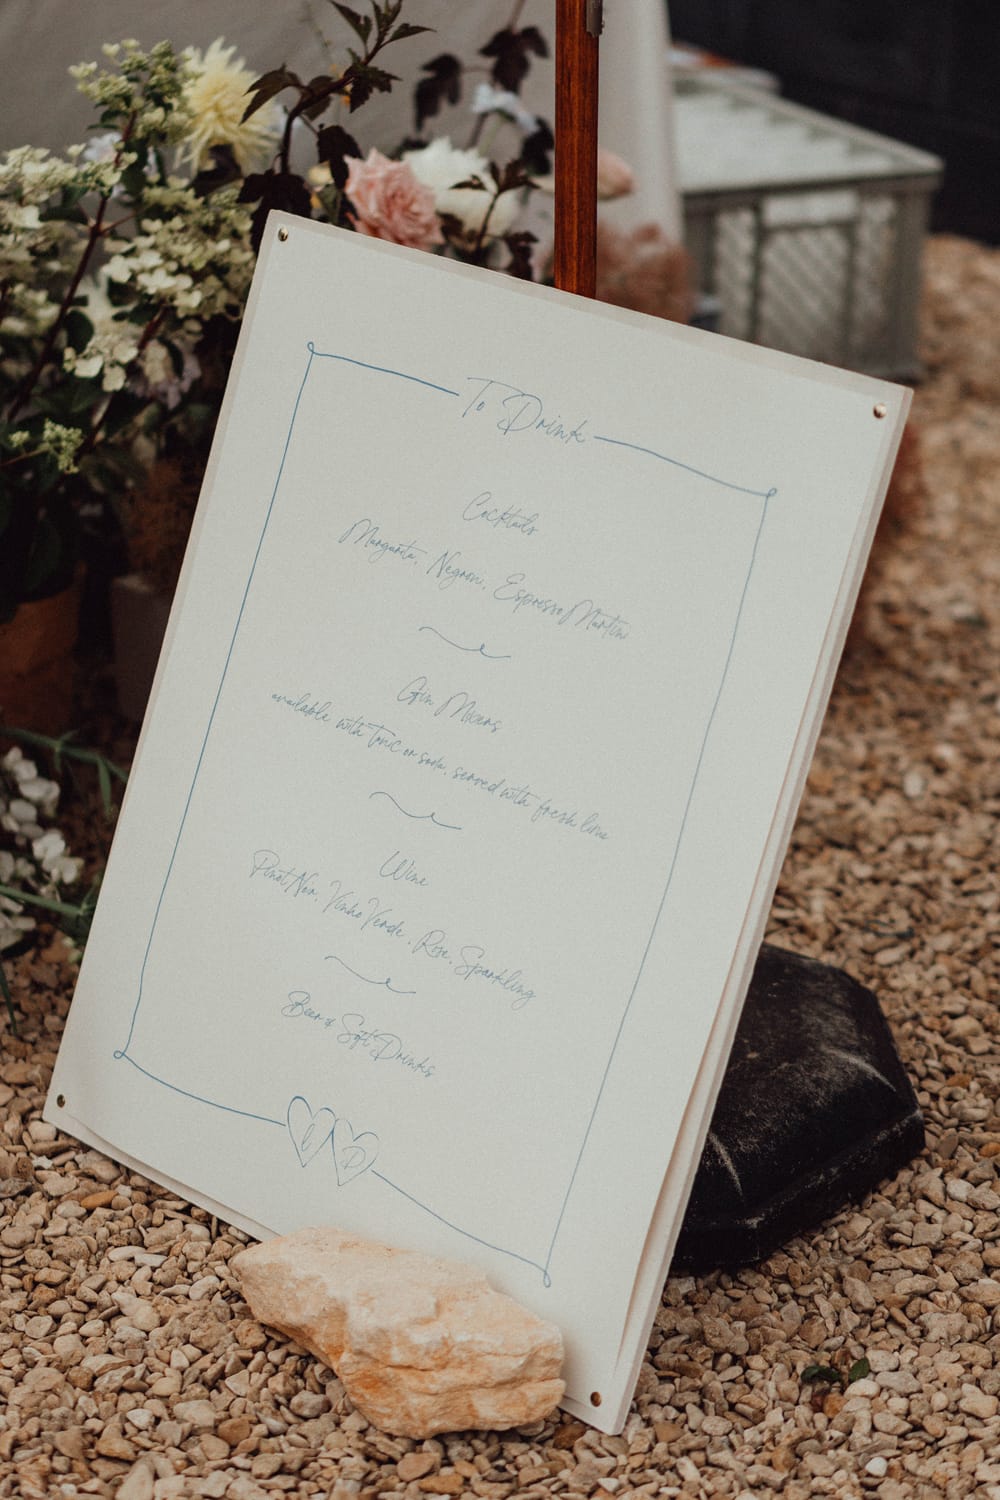 To Drink
Cocktails
Margarita, Negroni, Espresso Martini
Gin Mixers
available with Tonic or soda, served with fresh lime
Wine
Pinot Noir, Vinho Verde, Rose, Sparkling
Beer & Soft Drinks
D